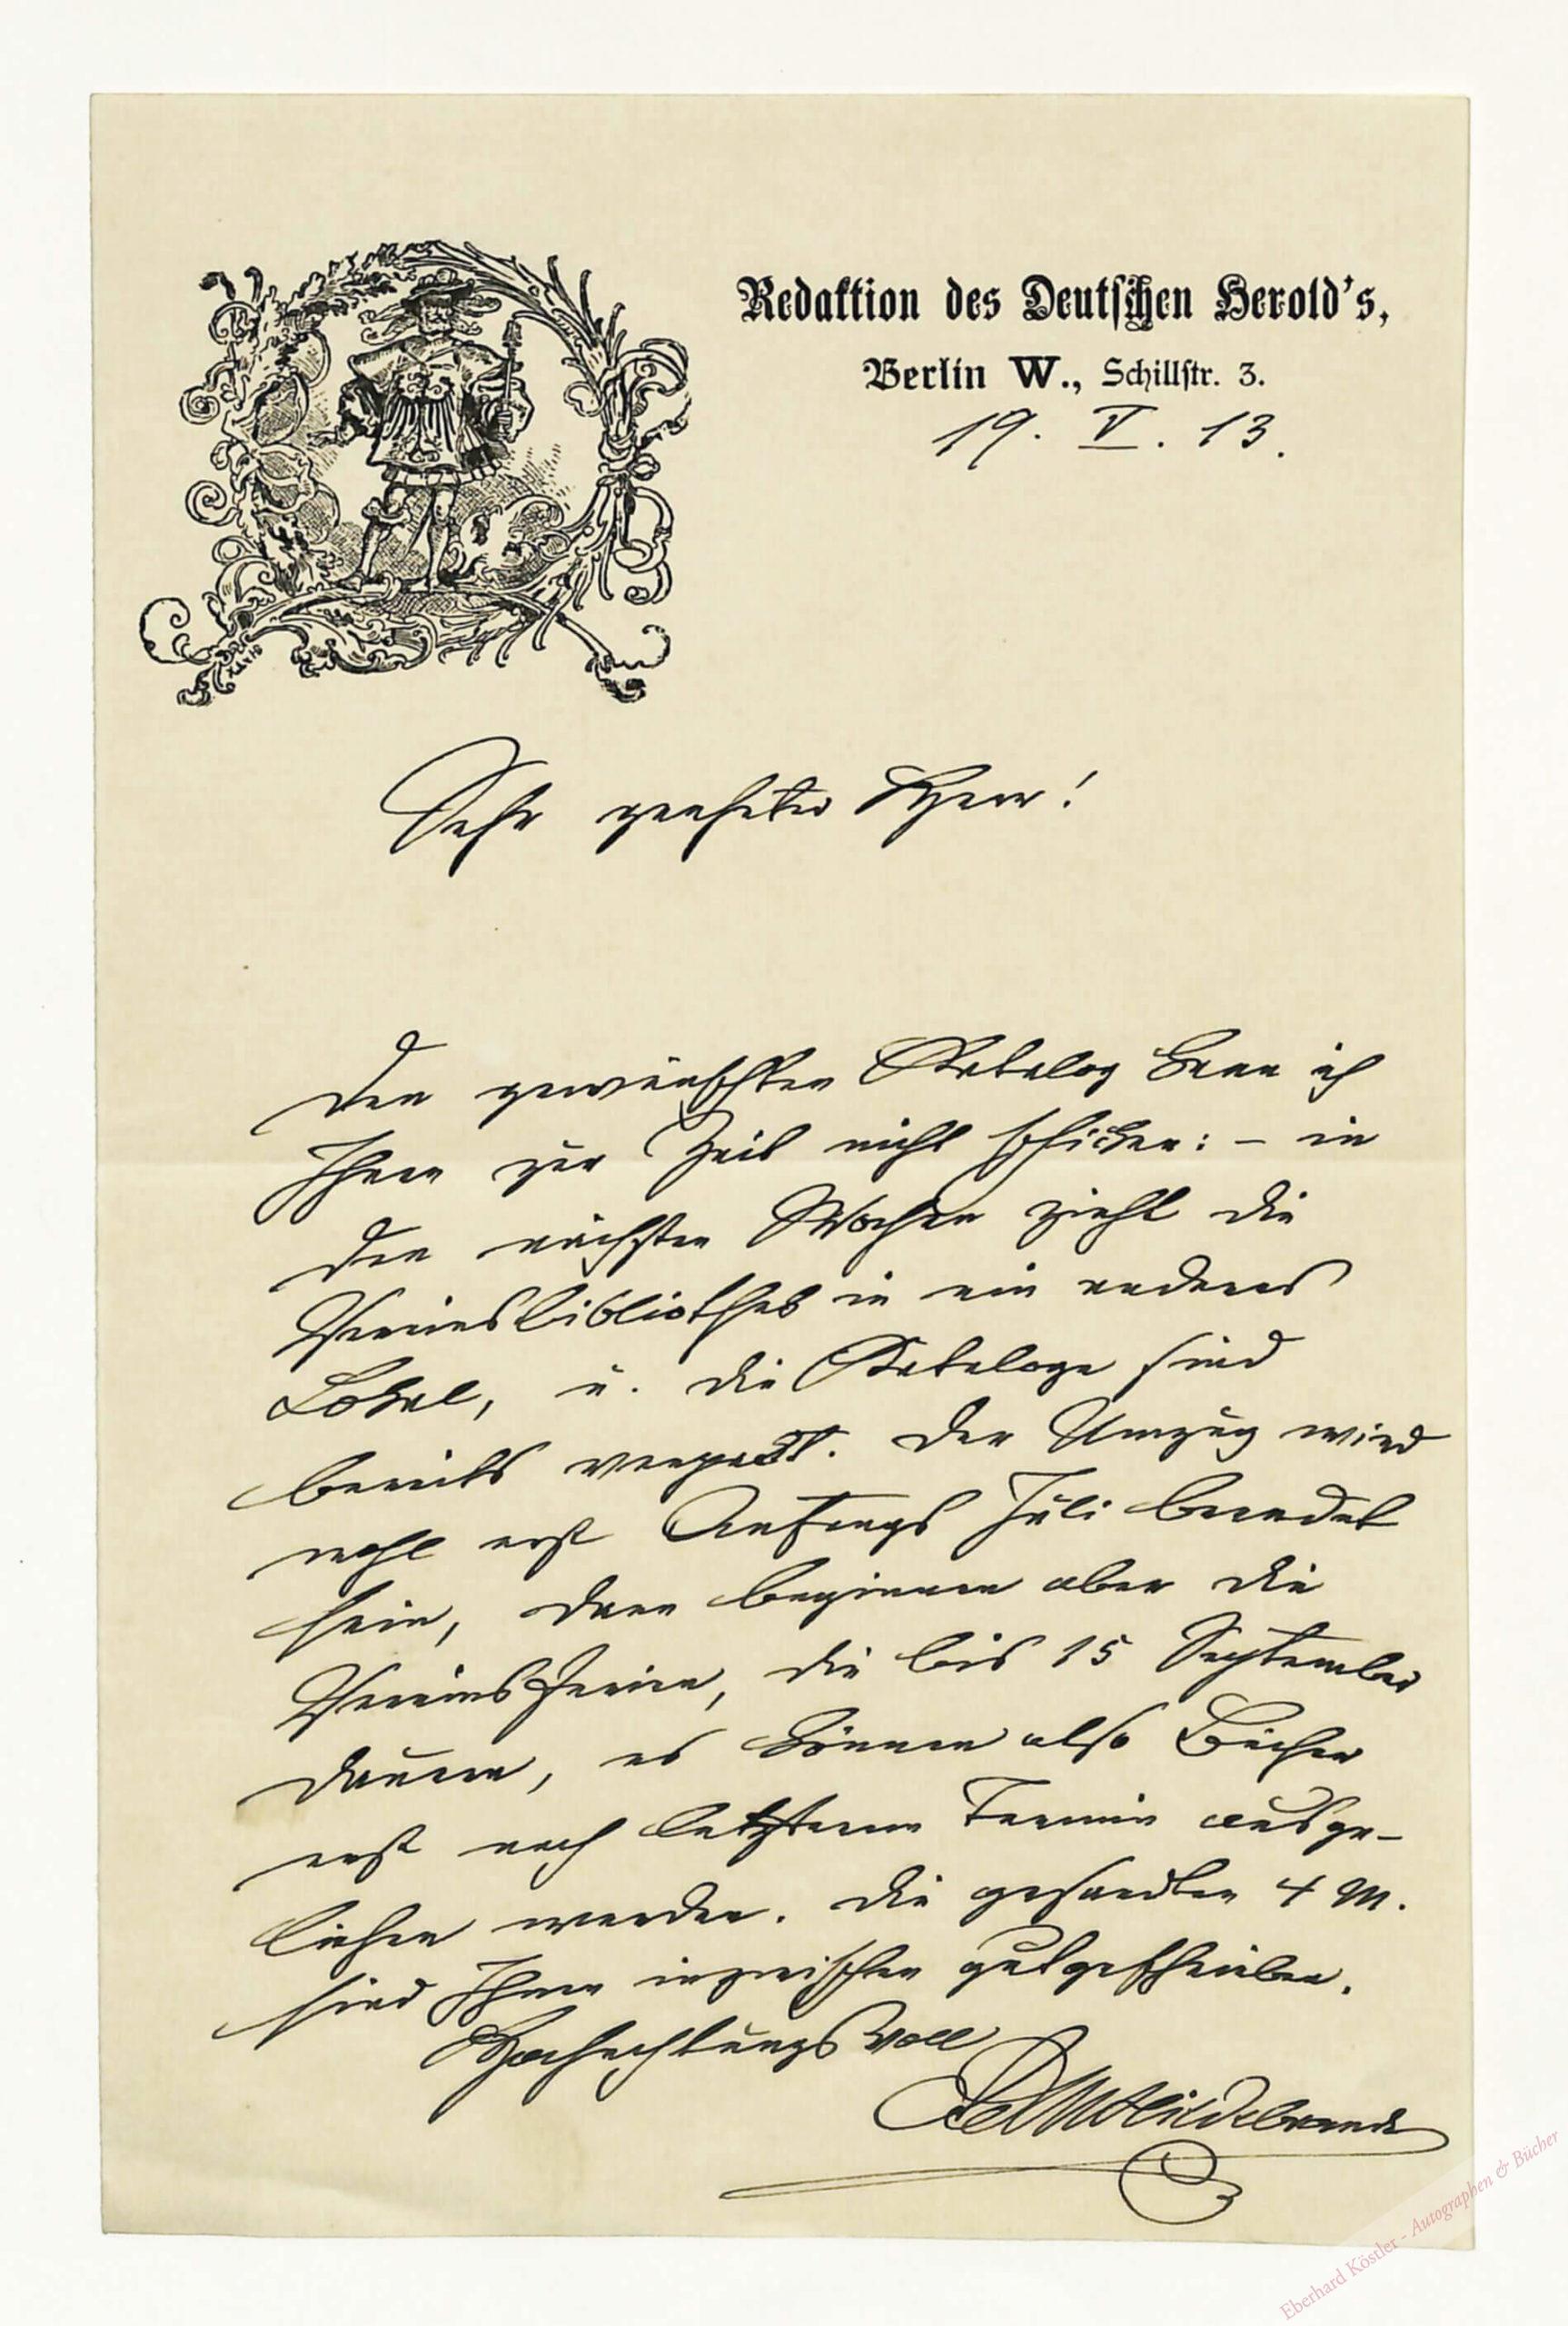 Redaktion des Deutschen Herold's,
Berlin W., Schillstr. 3.
19. V. 13.
Sehr geehrter Herr!
Den gewünschten Katalog kann ich
Ihnen zur Zeit nicht schicken: – in
den nächsten Wochen zieht die
Vereinsbibliothek in ein anderes
Lokal, u. die Kataloge sind
bereits verpackt. Der Umzug wird
wohl erst Anfangs Juli beendet
sein, dann beginnen aber die
Vereinsferien, die bis 15 September
dauern, es können also Bücher
erst nach letzterem Termin ausge-
liehen werden. Die gesandten 4 M.
sind Ihnen inzwischen gutgeschrieben.
Hochachtungsvoll
AdMHildebrandt
Eberhard Köstler - Autographen & Bücher